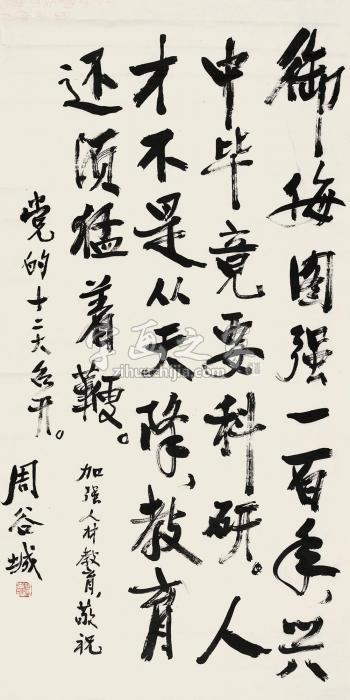 御侮图强一百年、兴
中毕竟要科研。人
才不是从天降、教育
还须猛着鞭。
加强人材教育，敬祝
党的十二大召开。
周谷城
字画之家
zihuazhijia.com